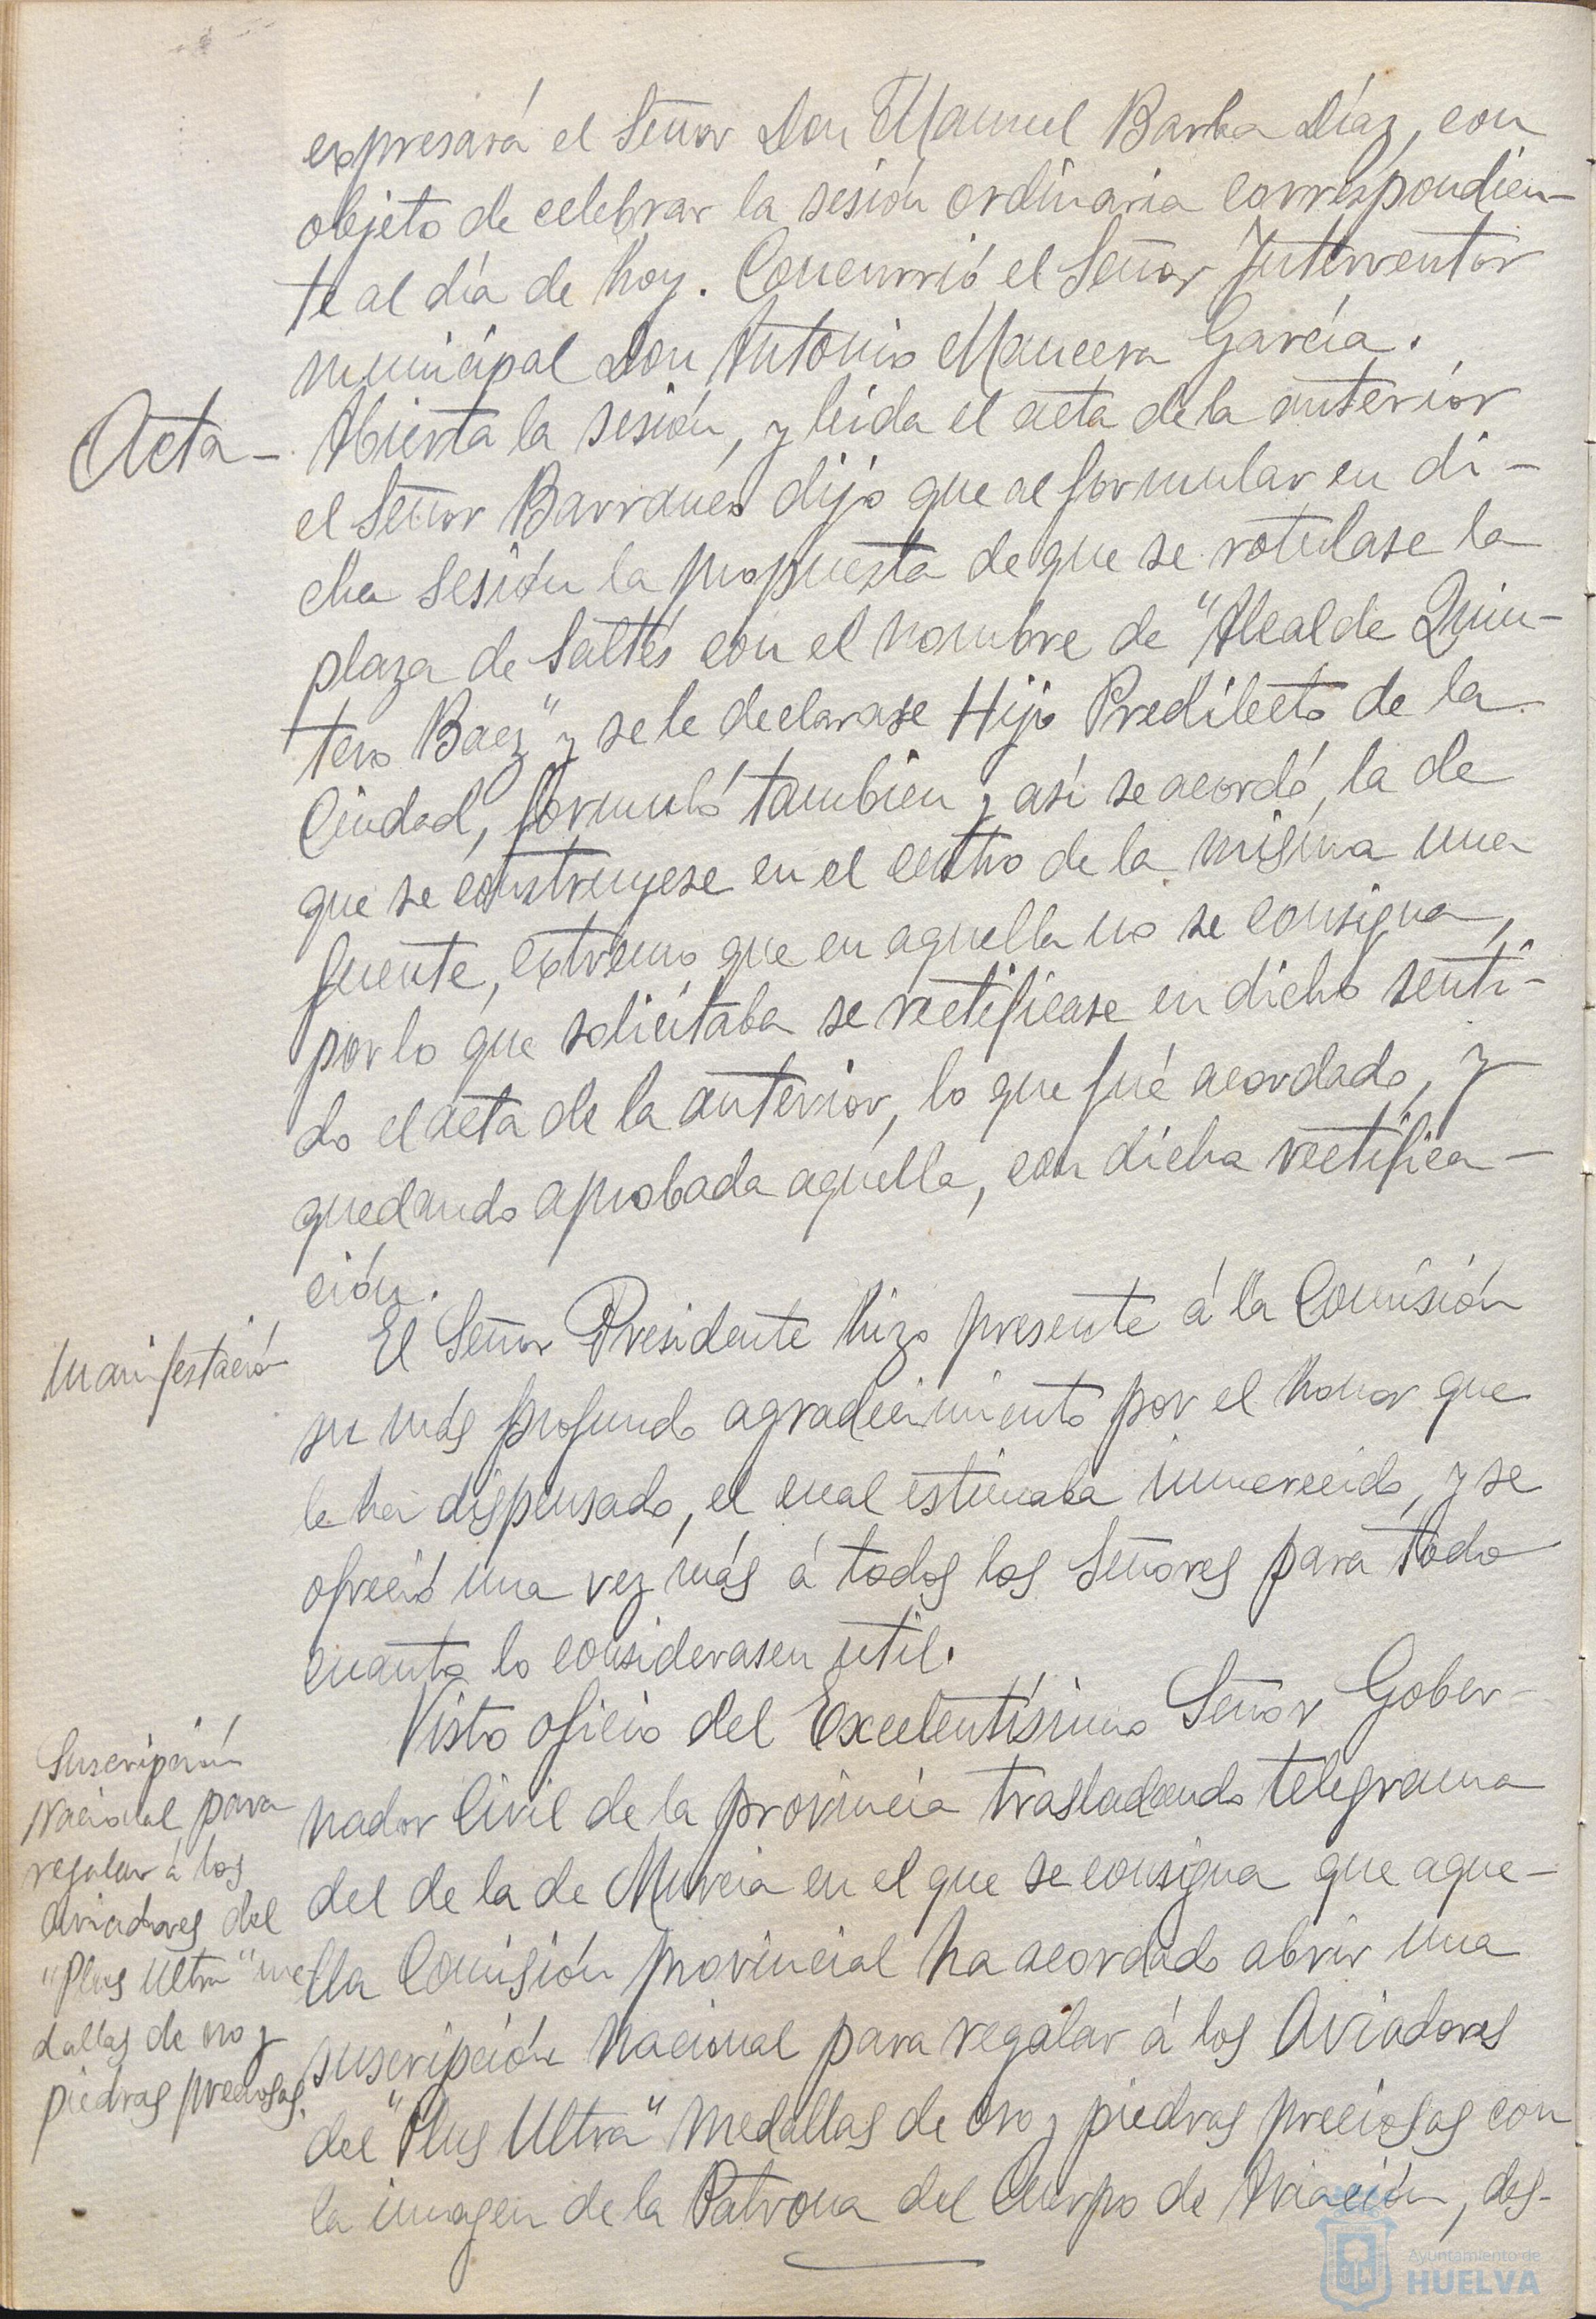 expresará el Señor Don Manuel Barba Díaz, con
objeto de celebrar la sesión ordinaria correspondien-
te al día de hoy. Concurrió el Señor Interventor
municipal Don Antonio Mancera García.
Acta - Abierta la sesión, y leida el acta de la anterior
el Señor Barranco dijo que al formular en di-
cha sesión la propuesta de que se rotulase la
plaza de Saltés con el nombre de "Alcalde Quin-
tero Baez" y se le declarase Hijo Predilecto de la
Ciudad, formuló tambien y así se acordó, la de
que se construyese en el centro de la misma una
fuente, extremo que en aquella no se consigna,
por lo que solicitaba se rectificase en dicho senti-
do el acta de la anterior, lo que fué acordado, y
quedando aprobada aquella, con dicha rectifica-
ción.
Manifestación
El Señor Presidente hizo presente á la Comisión
su más profundo agradecimiento por el honor que
le ha dispensado, el cual estimaba inmerecido, y se
ofreció una vez más á todos los Señores para todo
cuanto lo considerasen util.
Suscripción
Nacional para
regalar á los
Aviadores del
"Plus Ultra" me-
dallas de oro y
piedras preciosas.
Visto oficio del Excelentísimo Señor Gober-
nador Civil de la provincia trasladando telegrama
del de la de Murcia en el que se consigna que aque-
lla Comisión provincial ha acordado abrir una
suscripción Nacional para regalar á los Aviadores
del "Plus Ultra" Medallas de oro y piedras preciosas con
la imagen de la Patrona del Cuerpo de Aviación, des-
Ayuntamiento de
HUELVA